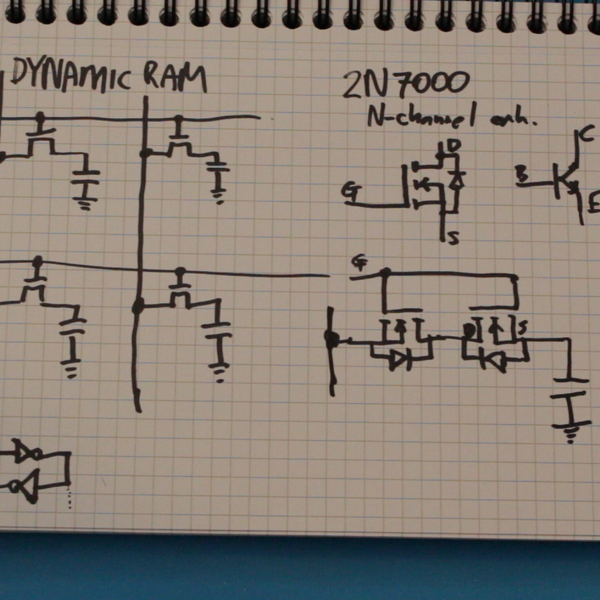 DYNAMIC RAM
2N7000
N-channel enh.
D
G
S
C
B
E
G
D
S